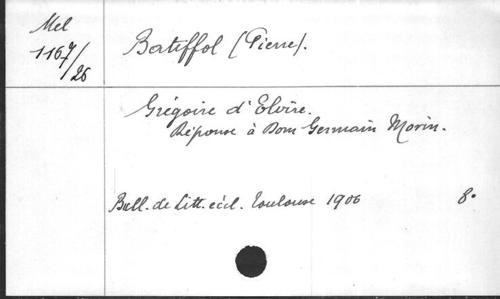 Mel
1167/26
Batiffol (Pierre).
Grégoire d'Elvire.
Réponse à Dom Germain Morin.
Bull. de Litt. eccl. Toulouse 1906 8°